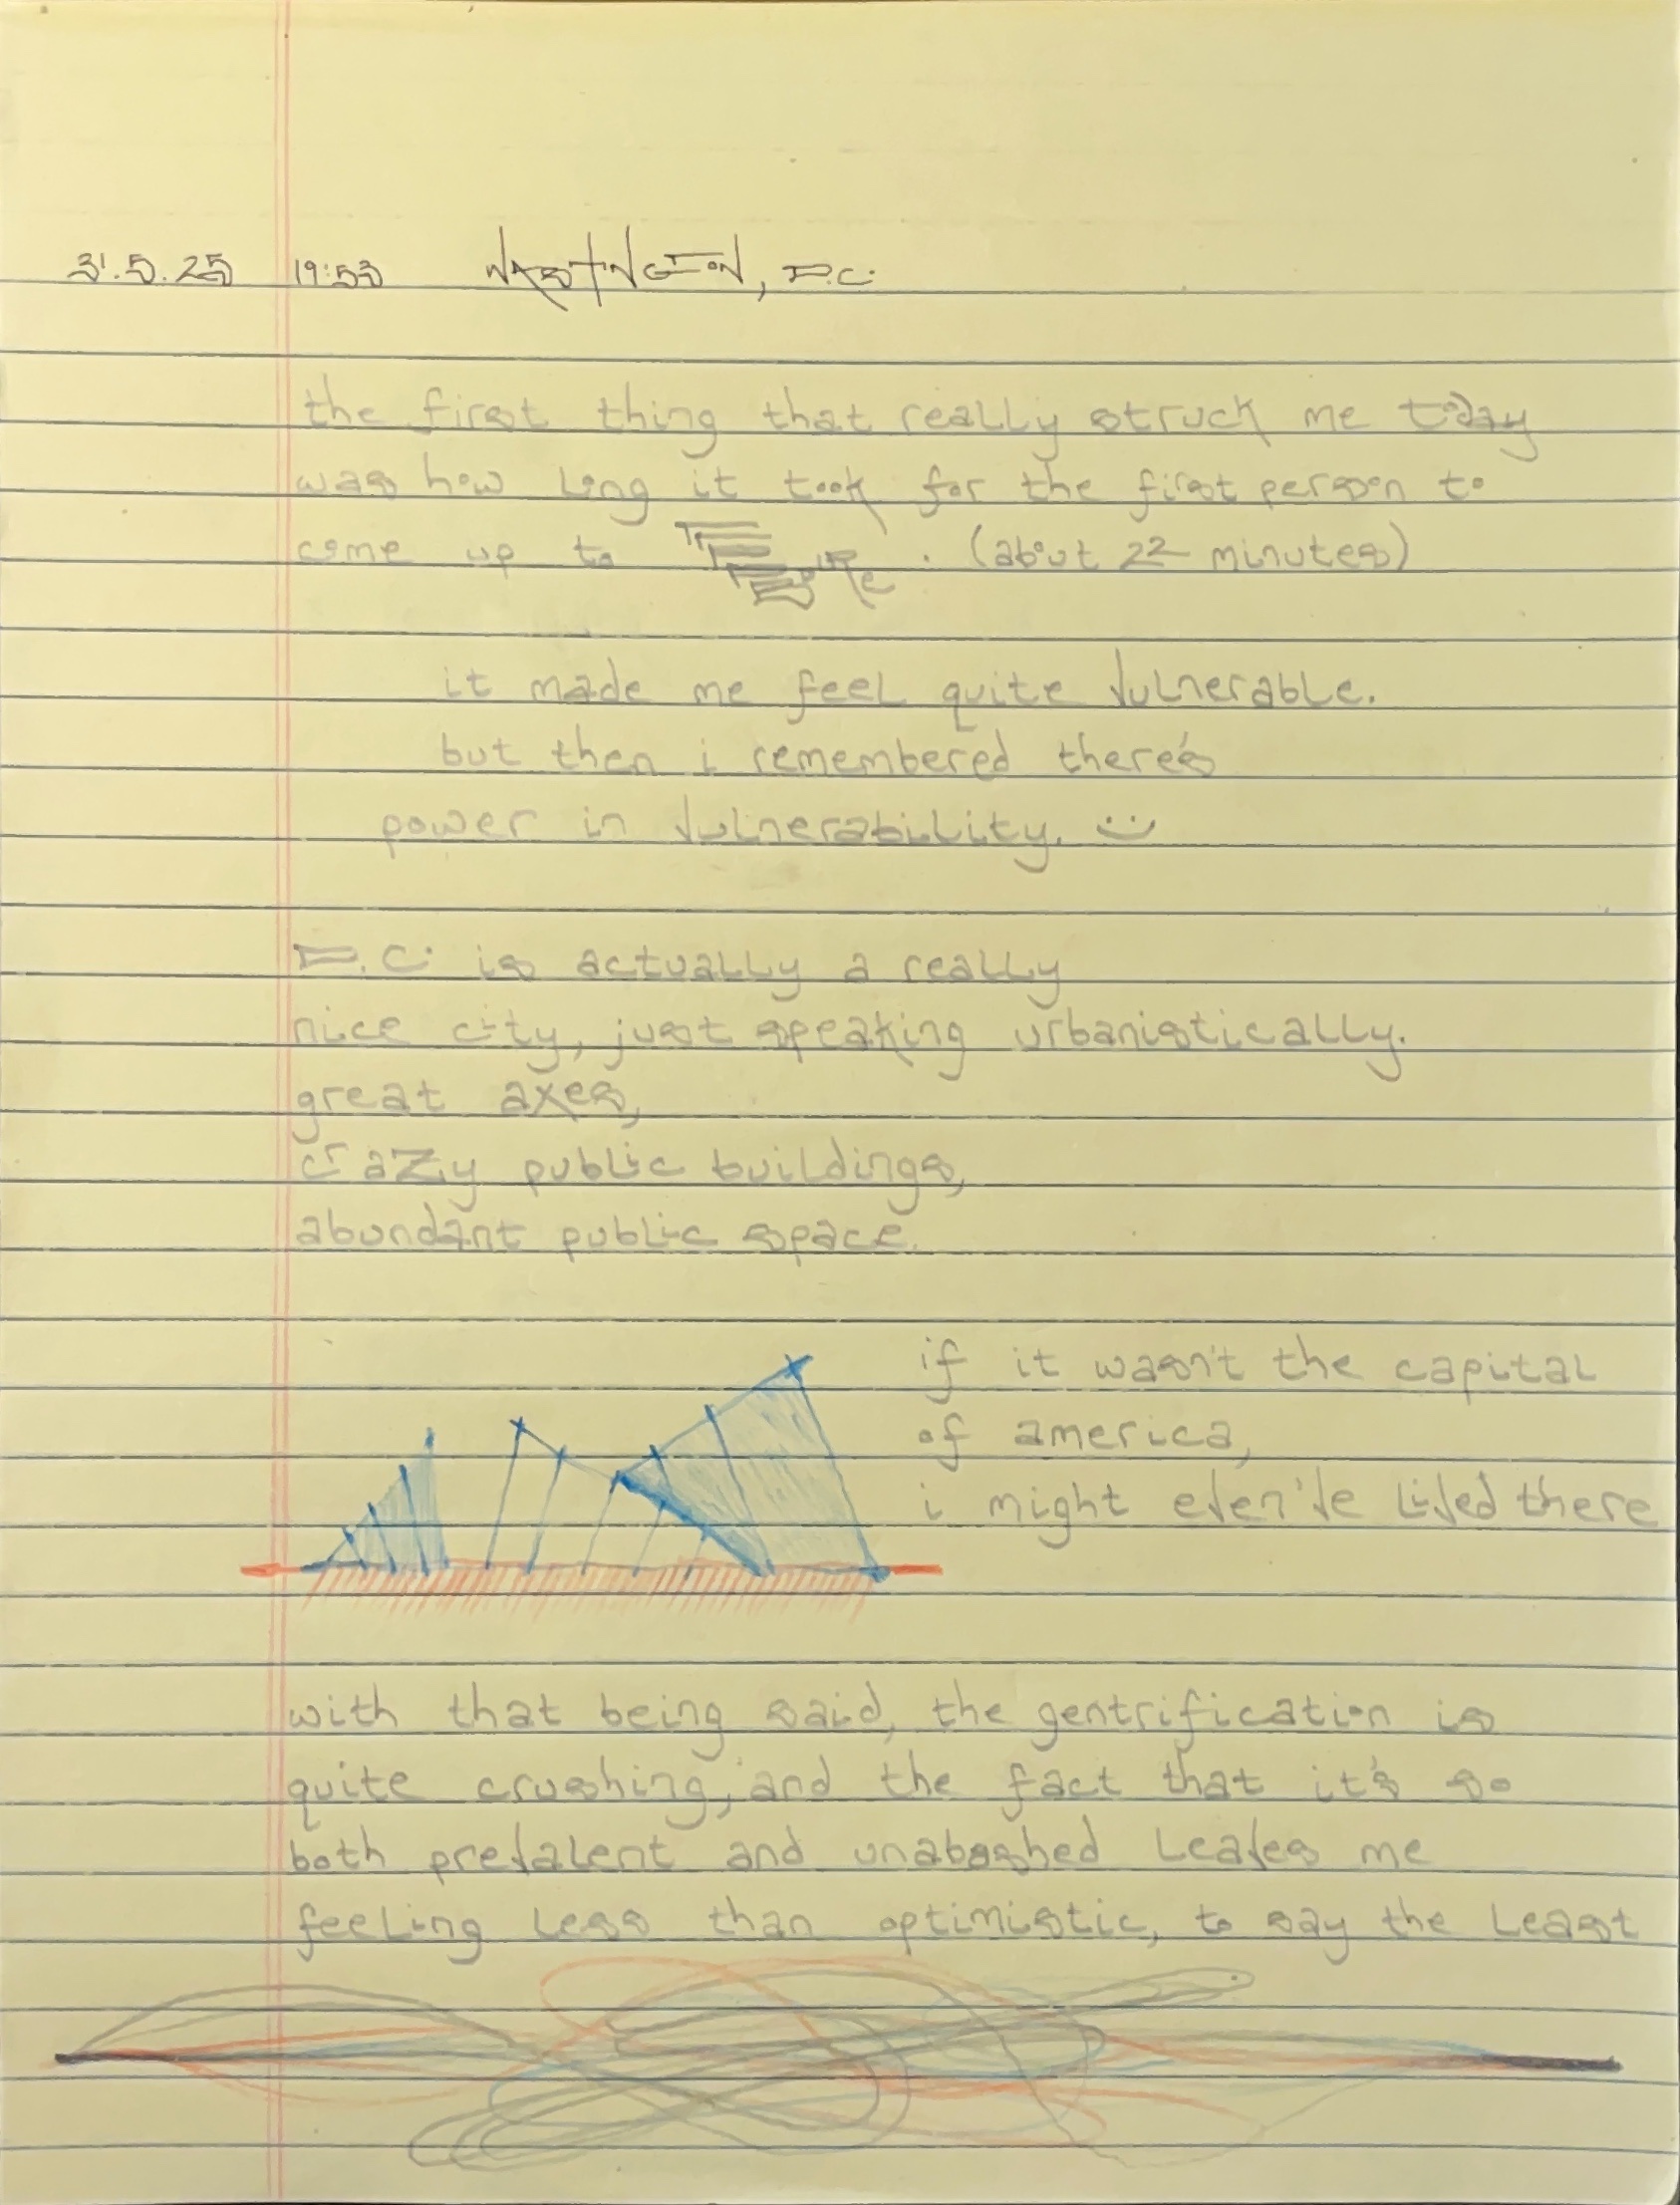 31.5.25 19:53 WASHINGTON, D.C.
the first thing that really struck me today
was how long it took for the first person to
come up to . (about 22 minutes)
it made me feel quite vulnerable.
but then i remembered there's
power in vulnerability. :)
D.C. is actually a really
nice city, just speaking urbanistically.
great axes,
crazy public buildings,
abundant public space.
if it wasn't the capital
of america,
i might even've lived there
with that being said, the gentrification is
quite crushing, and the fact that it's so
both prevalent and unabashed leaves me
feeling less than optimistic, to say the least